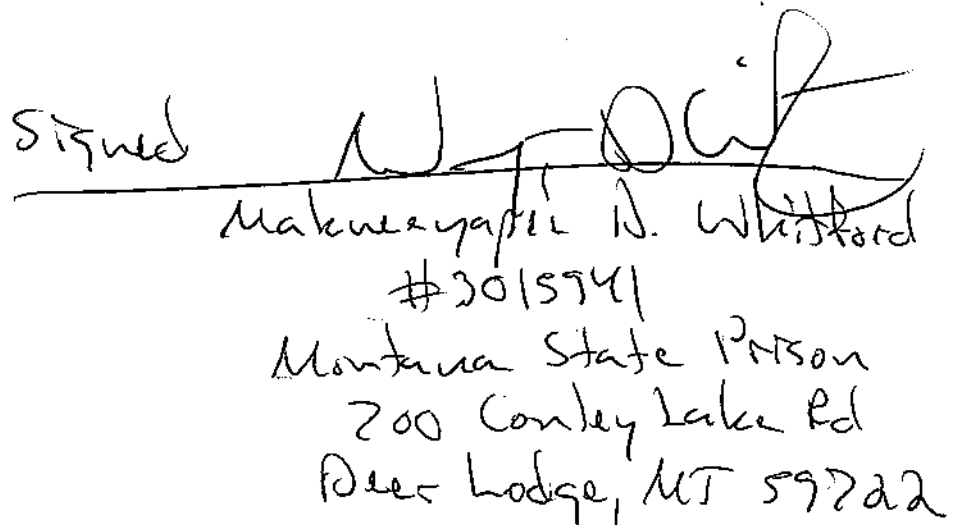 Signed
Makueeyapii D. Whitford
#3015941
Montana State Prison
700 Conley Lake Rd
Deer Lodge, MT 59722